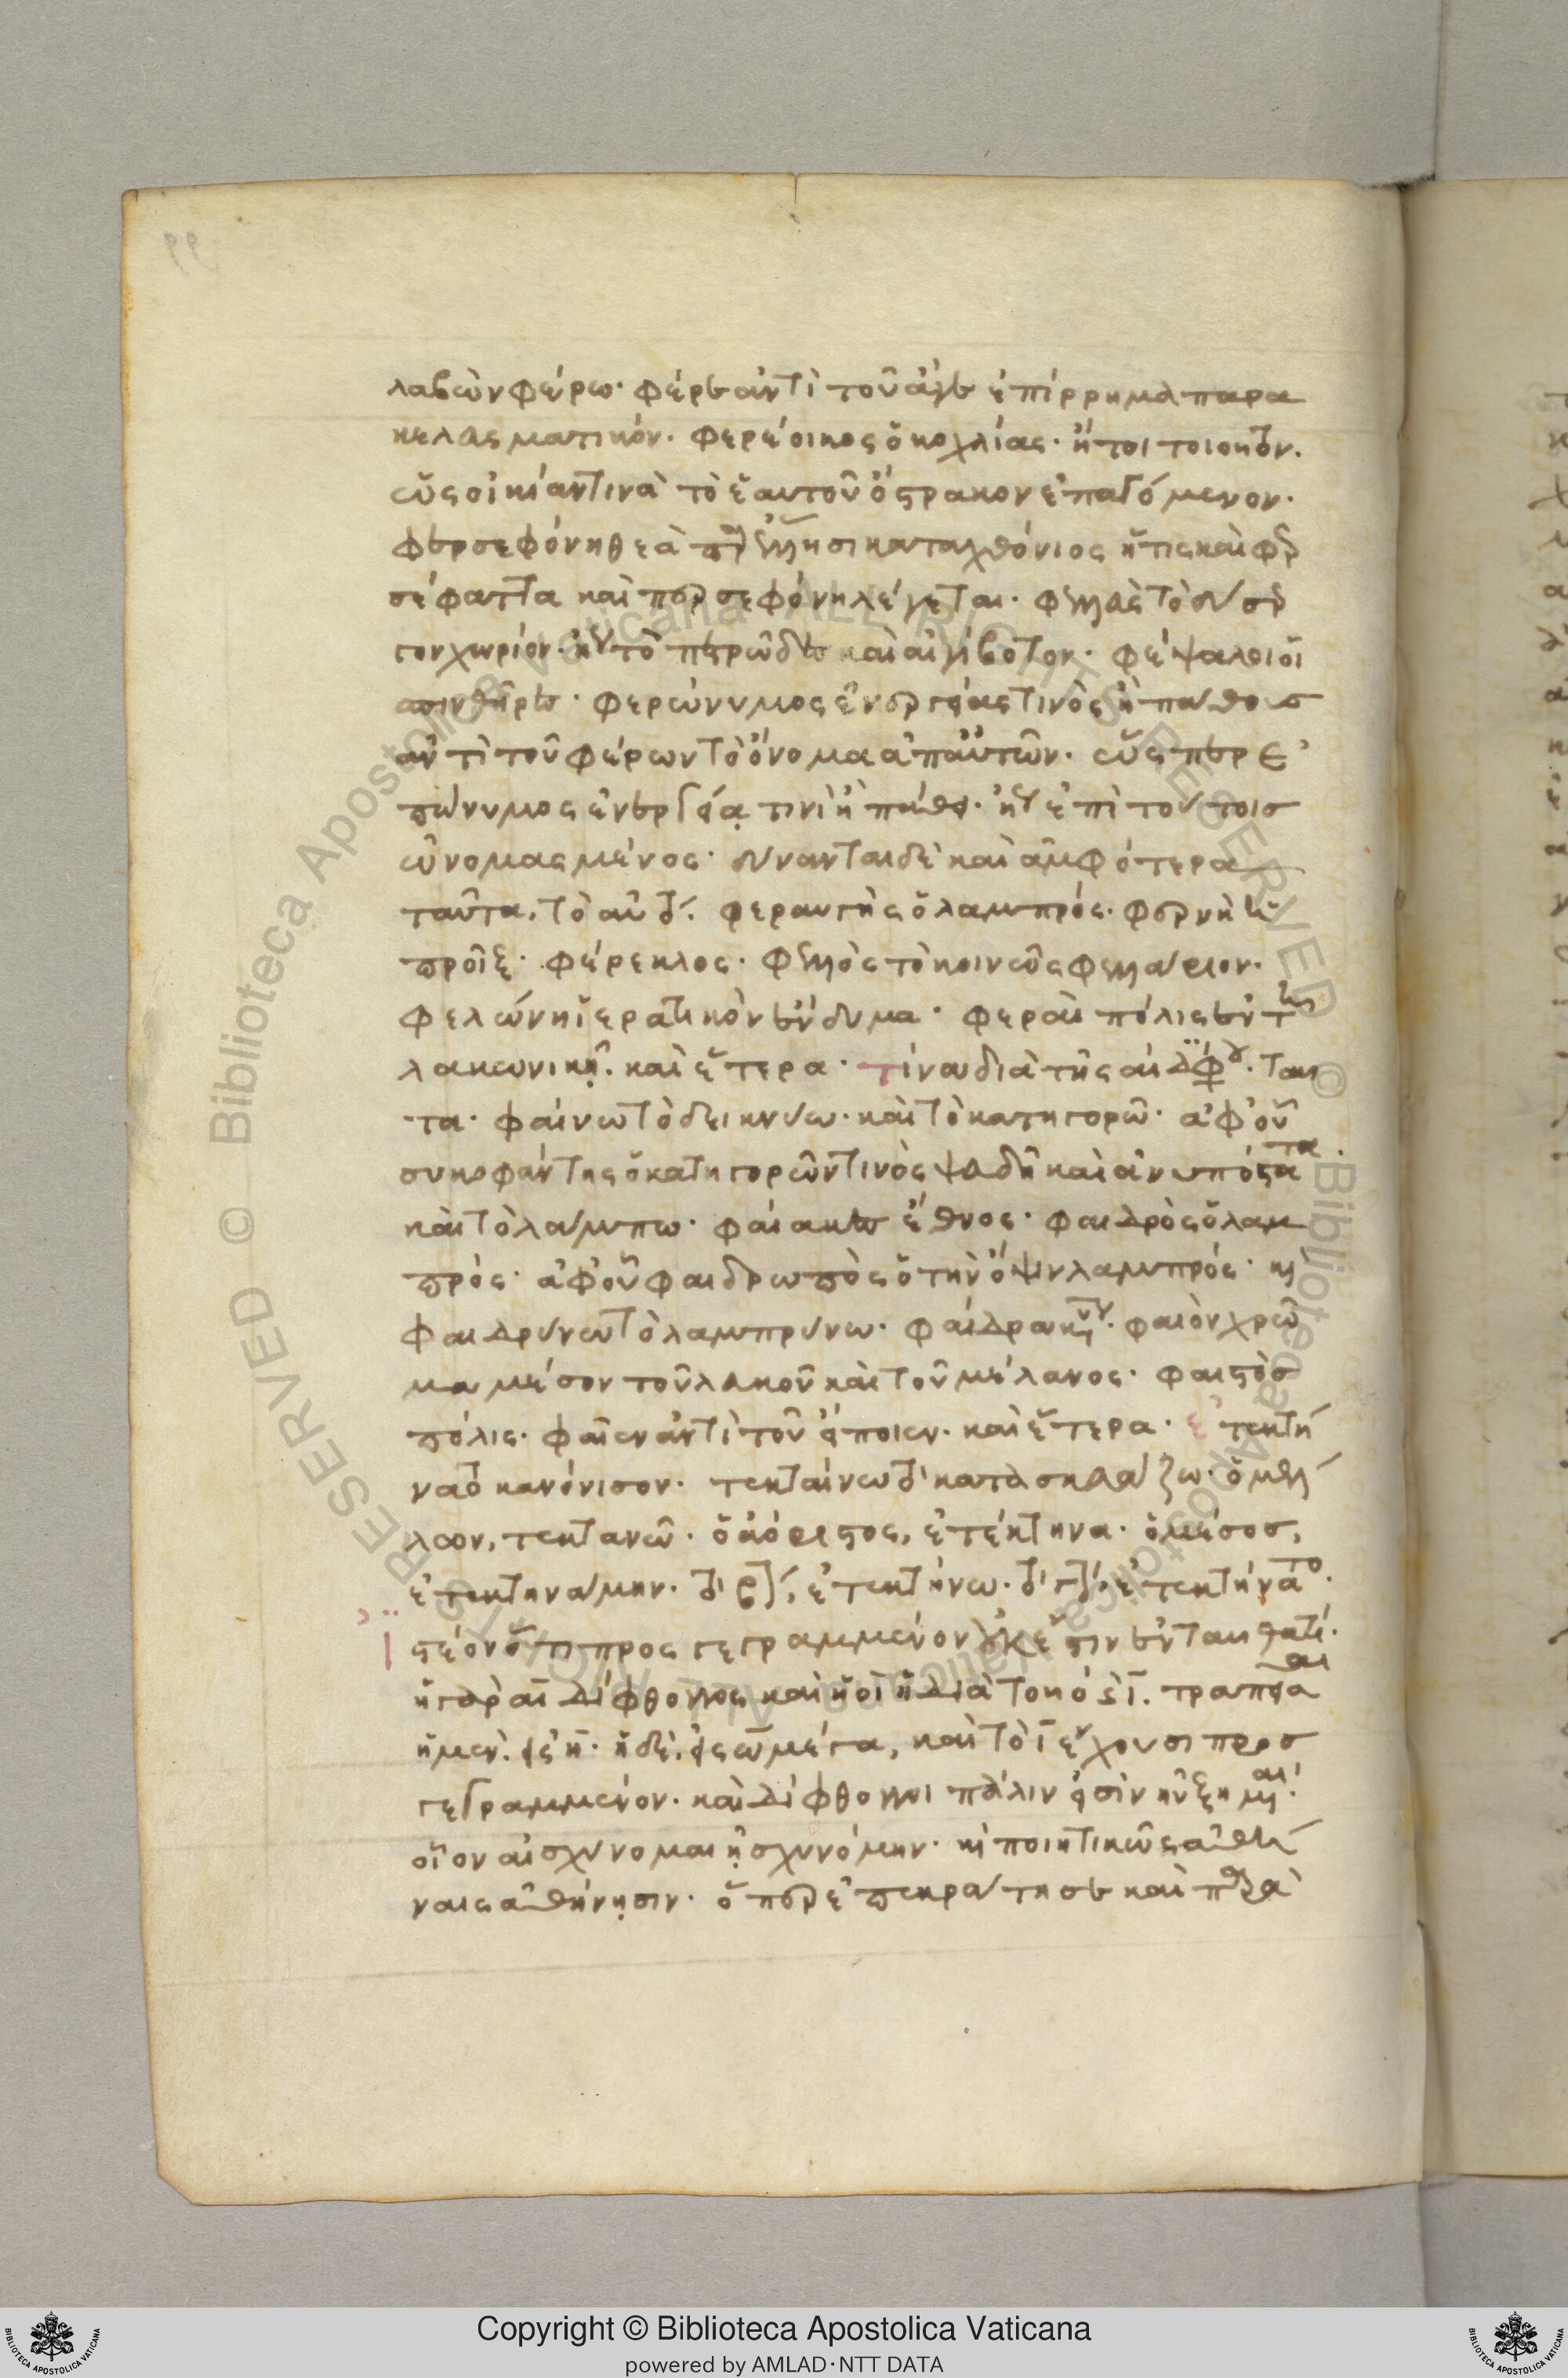 λαβὼν φέρω· φέρε ἀντὶ τοῦ ἄγε ἐπίρρημα παρα
κελαςματικόν· φερέοικος ὁ κοχλίας· ἤτοι τοιοῦτον.
ὡς οἰκίαν τινὰ τὸ ἑαυτοῦ ὄστρακον ἐπαγόμενον·
φερσεφόνη θεὰ παρ' ἕλλησι καταχθόνιος ἥτις καὶ φερ
σέφαττα καὶ περσεφόνη λέγεται· φελλὰς τὸ δύσερ
γον χωρίον· καὶ τὸ πετρῶδες καὶ αἰγίβοτον· φέψαλοι οἱ
σπινθῆρες· φερώνυμος ἐνεργείας τινὸς ἢ πάθους
ἀντὶ τοῦ φέρων τὸ ὄνομα ἀπ' αὐτῶν· ὡς περ ἐ
πώνυμος ἐνεργείᾳ τινὶ ἢ πάθει· καὶ ἐπὶ τούτοις
ὠνομασμένος· δύνανται δὲ καὶ ἀμφότερα
ταῦτα, τὸ αὐτό. φεραυγὴς ὁ λαμπρός· φερνὴ ἡ
προῖξ· φέρεκλος· φελλὸς τὸ κοινῶς φελλάριον·
φελώνη ἱερατικὸν ἔνδυμα· φεραὶ πόλις ἐν τῇ
λακωνικῇ· καὶ ἕτερα· τίνα διὰ τῆς αι διφθόγγου· ταῦ
τα· φαίνω τὸ δεικνύω· καὶ τὸ κατηγορῶ· ἀφ' οὗ
συκοφάντης ὁ κατηγορῶν τινὸς ψευδῆ καὶ ἀνυπόστατα·
καὶ τὸ λάμπω· φαίακες ἔθνος· φαιδρὸς ὁ λαμ
πρός· ἀφ' οὗ φαιδρωπὸς ὁ τὴν ὄψιν λαμπρός· καὶ
φαιδρύνω τὸ λαμπρύνω· φαίδρα κύριον· φαιὸν χρῶ
μα μέσον τοῦ λευκοῦ καὶ τοῦ μέλανος· φαιστὸς
πόλις· φαῖεν ἀντὶ τοῦ εἴποιεν· καὶ ἕτερα· ἐτεκτή
νατο κανόνισον· τεκταίνω τὸ κατασκευάζω· ὁ μέλ
λων, τεκτανῶ· ὁ ἀόριστος, ἐτέκτηνα· ὁ μέσος,
ἐτεκτηνάμην· τὸ βʹ, ἐτεκτήνω· τὸ γʹ, ἐτεκτήνατο·
ἰστέον ὅτι προσγεγραμμένον οὐκ ἔστιν ἐνταῦθα τὸ ι·
ἡ γὰρ αι δίφθογγος καὶ ἡ οι ἡ διὰ τοῦ ο καὶ ι. τραπεῖσαι
ἡ μὲν, εἰς η· ἡ δὲ, εἰς ω μέγα, καὶ τὸ ι ἔχουσι προσ
γεγραμμένον· καὶ δίφθογγοι πάλιν εἰσὶν ηὐξημέναι·
οἷον αἰσχύνομαι ᾐσχυνόμην· καὶ ποιητικῶς ἀθή
ναις ἀθήνῃσιν· ὅπερ ἐπεκράτησε καὶ παρὰ